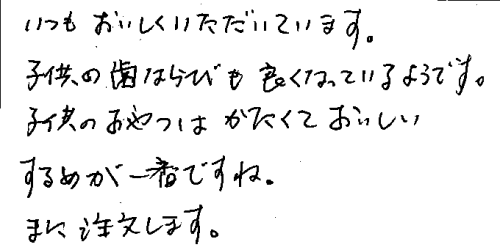 いつもおいしくいただいています。
子供の歯ならびも良くなっているようです。
子供のおやつはかたくておいしい
するめが一番ですね。
また注文します。